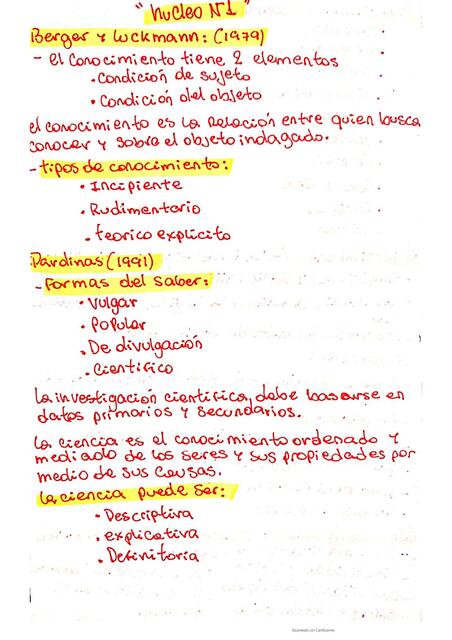 "Nucleo N°1"
Berger y Luckmann: (1979)
- el conocimiento tiene 2 elementos
• Condición de sujeto
• Condición del objeto
el conocimiento es la relación entre quien busca
conocer y sobre el objeto indagado.
- tipos de conocimiento:
• Incipiente
• Rudimentario
• teorico explícito
Pardinas (1991)
- Formas del saber:
• Vulgar
• Popular
• De divulgación
• Científico
la investigación científica, debe basarse en
datos primarios y secundarios.
la ciencia es el conocimiento ordenado y
mediado de los seres y sus propiedades por
medio de sus causas.
la ciencia puede ser:
• Descriptiva
• explicativa
• Definitoria
Escaneado con CamScanner